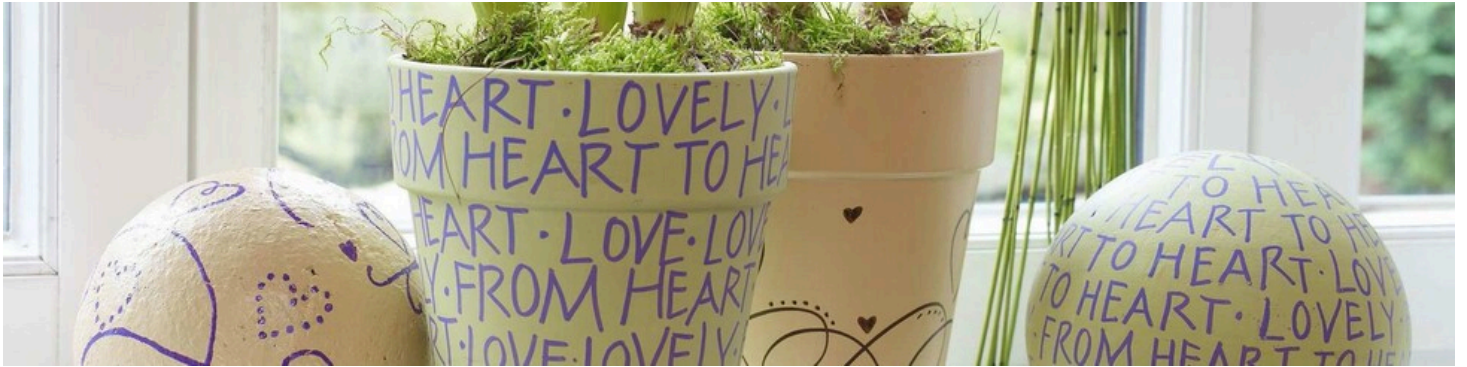 HEART · LOVELY ·
OM HEART TO HEA
HEART · LOVE · LOV
Y · FROM HEART
RT · LOVE · LOVELY ·
ELY
TO HEA
HEART TO HE
RT TO HEART · LOVE
TO HEART · LOVELY ·
FROM HEART TO HE